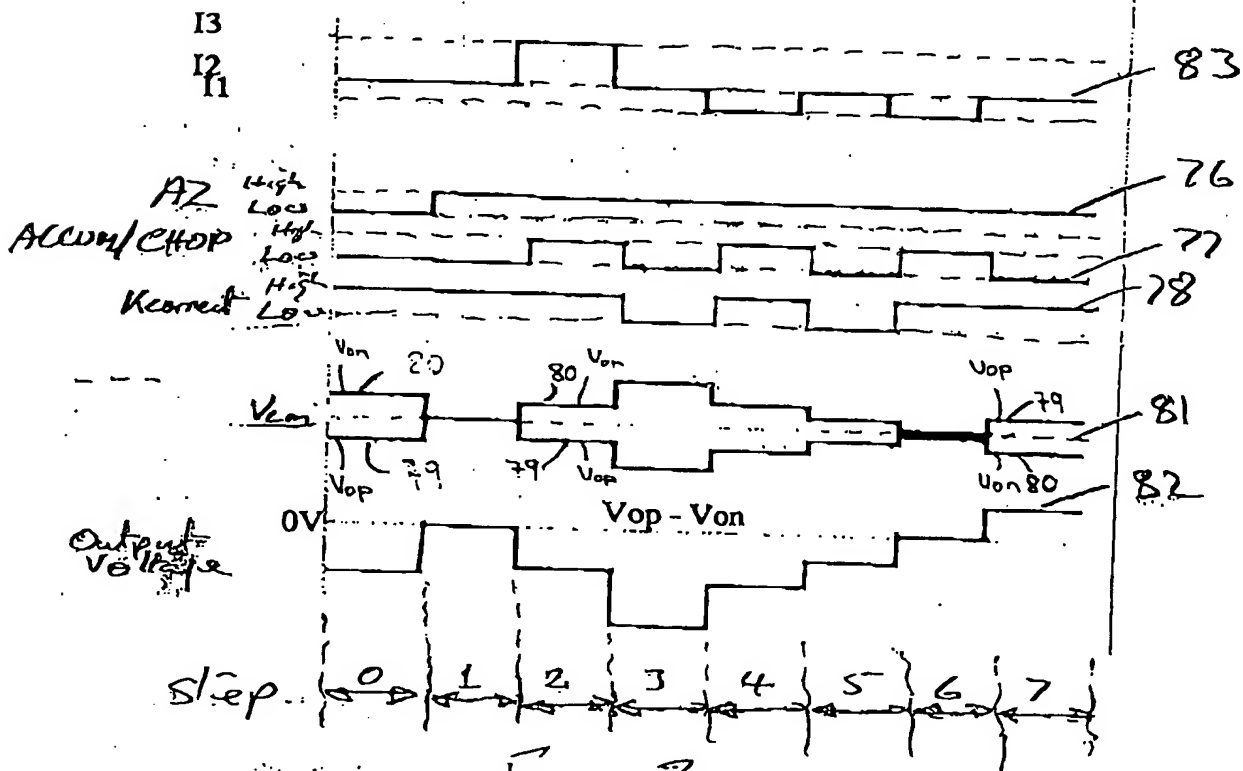 I3
I2
I1
83
AZ High
Low
76
ACCUM/CHOP High
Low
77
Kcorrect High
Low
78
Von 80
80 Von
Vop 79
Vcm
81
Vop 79
79 Vop
Von 80
82
0V Vop - Von
Output
Voltage
Step 0 1 2 3 4 5 6 7